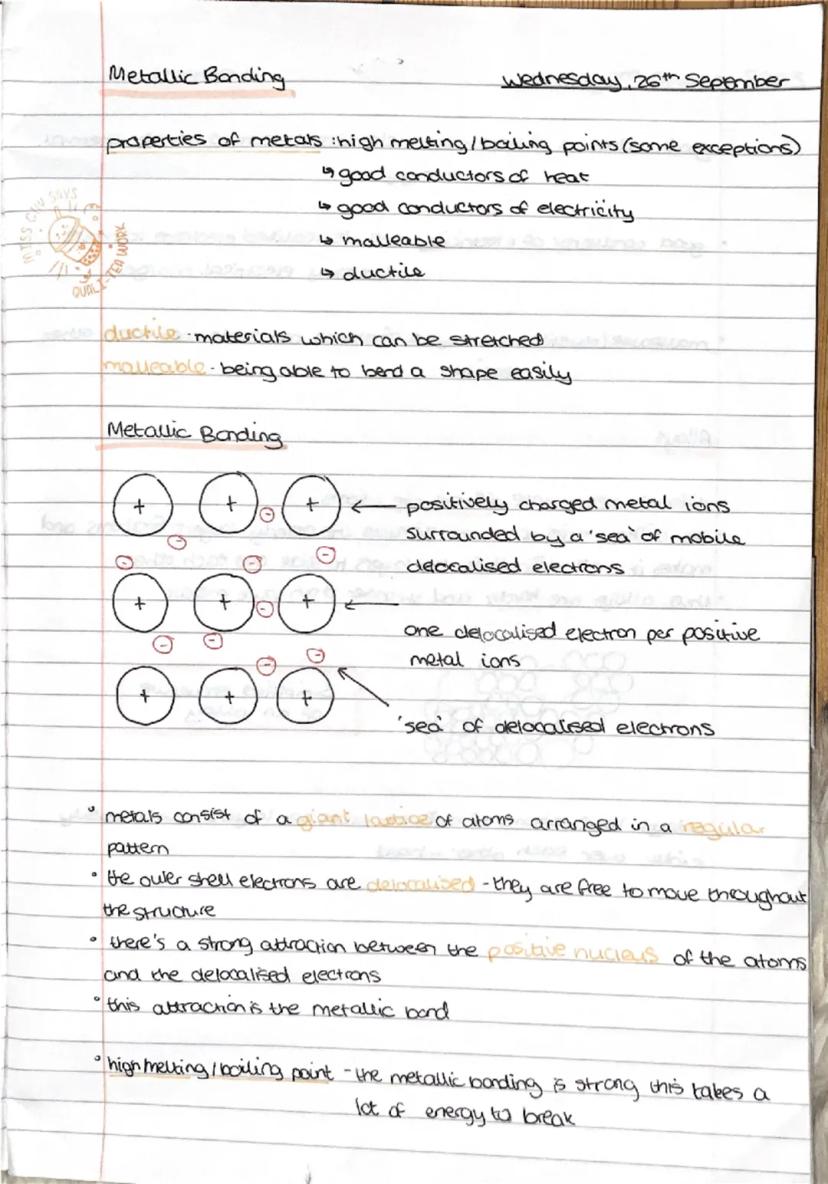 Metallic Bonding Wednesday, 26th September
properties of metals : high melting / boiling points (some exceptions)
↳ good conductors of heat
↳ good conductors of electricity
↳ malleable
↳ ductile
MISS CHU SAYS
QUALI-TEA WORK
ductile · materials which can be stretched
malleable · being able to bend a shape easily
Metallic Bonding
+ + + ← positively charged metal ions
surrounded by a 'sea' of mobile
delocalised electrons
+ + + ← one delocalised electron per positive
metal ions
+ + +
'sea' of delocalised electrons
° metals consist of a giant lattice of atoms arranged in a regular
pattern
• the outer shell electrons are delocalised - they are free to move throughout
the structure
° there's a strong attraction between the positive nucleus of the atoms
and the delocalised electrons
• this attraction is the metallic bond
° high melting / boiling point - the metallic bonding is strong this takes a
lot of energy to break